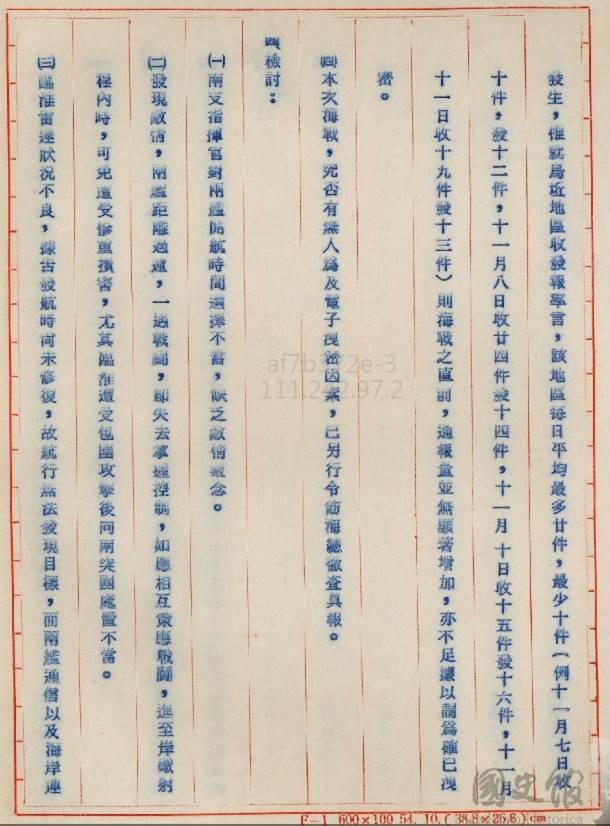 發生，惟就烏坵地區收發報率言，該地區每日平均最多廿件，最少十件（例十一月七日收
十件，發十二件，十一月八日收廿四件發十四件，十一月十日收十五件發十六件，十一月
十一日收十九件發十三件）則海戰之直前，通報量並無顯著增加，亦不足據以謂為確已洩
密。
㈣本次海戰，究否有無人為及電子洩密因素，已另行令飭海總徹查具報。
四、檢討：
㈠南支指揮官對兩艦開航時間選擇不當，缺乏敵情觀念。
㈡發現敵後，兩艦距離過遠，一遇戰鬪，即失去掌握控制，如應相互策應戰鬪，進至岸礮射
程內時，可免遭受慘重損害，尤其臨淮遭受包圍攻擊後向南突圍處置不當。
㈢臨淮雷達狀況不良，據告發航時尚未修復，故航行無法發現目標，而兩艦通信以及海岸連
af7b372e-3
111.242.97.2
國史館
F-1 600×100 54. 10. (38.8×26.8) cm